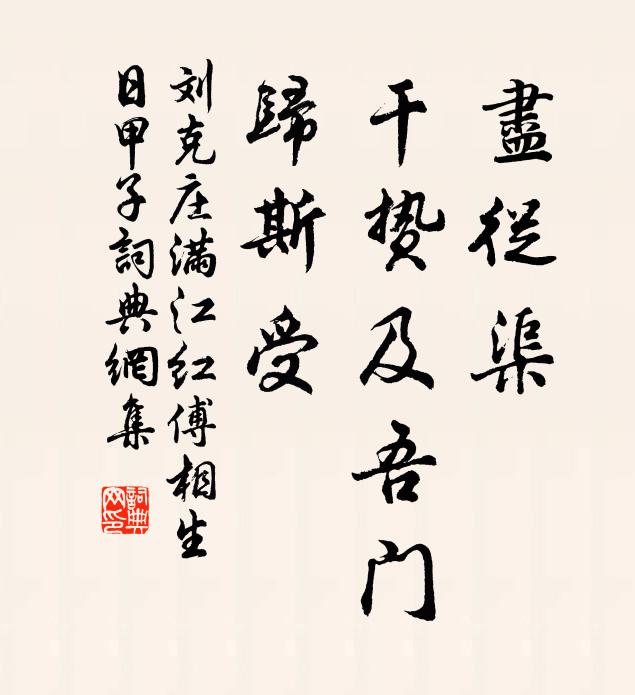 盡從渠
干贽及吾門
歸斯受
刘克庄满江红傅相生
日甲子詞典網集
詞典网印